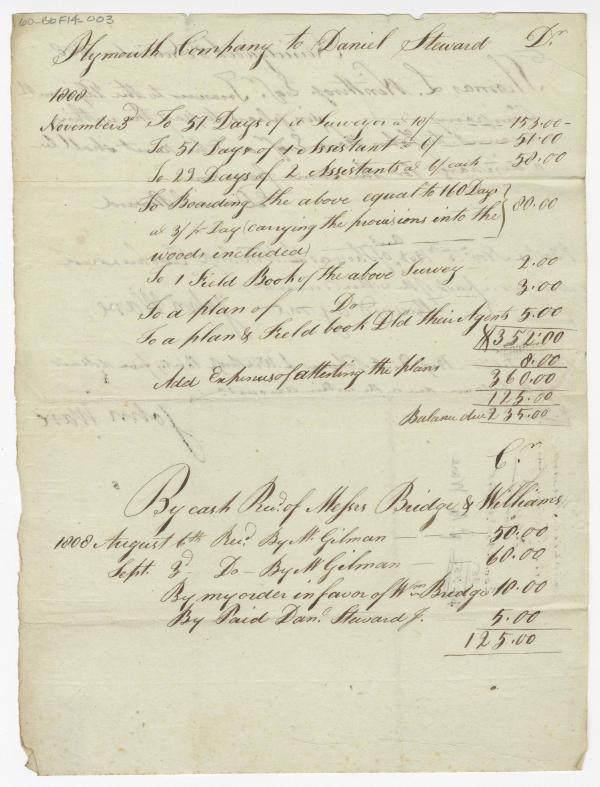 60-66F14-003
Plymouth Company to Daniel Steward Dr
1808
November 3d To 51 Days of a Surveyor a 18/ 153.00
To 51 Days of 1 Assistant 6/ 51.00
To 29 Days of 2 Assistants a 6/ each 58.00
To Boarding the above equal to 160 Days
at 3/ pr Day (carrying the provisions into the 80.00
woods included)
To 1 Field Book of the above Survey 2.00
To a plan of Do 3.00
To a plan & Field book Dld their Agents 5.00
$352.00
Add Expenses of attesting the plans 8.00
360.00
125.00
Balance due 235.00
Cr
By cash Recd. of Messrs Bridge & Williams
1808 August 6th Recd. By Mr. Gilman — 50.00
Sept. 3d — Do — By Mr Gilman — 60.00
By my order in favor of Wm Bridge 10.00
By Paid Danl. Steward J. 5.00
125.00
John Ware